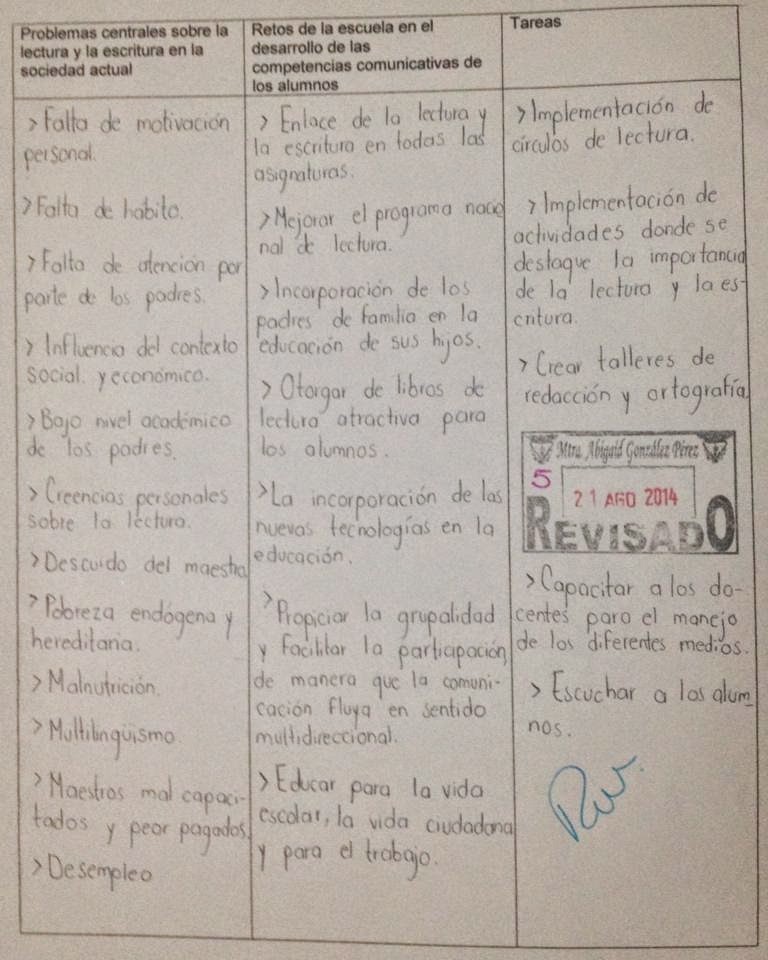 Problemas centrales sobre la
lectura y la escritura en la
sociedad actual
> Falta de motivación
personal.
> Falta de habito.
> Falta de atención por
parte de los padres.
> Influencia del contexto
social y económico.
> Bajo nivel académico
de los padres.
> Creencias personales
sobre la lectura.
> Descuido del maestro
> Pobreza endógena y
hereditaria.
> Malnutrición.
> Multilingüismo.
> Maestros mal capaci-
tados y peor pagados.
> Desempleo
Retos de la escuela en el
desarrollo de las
competencias comunicativas de
los alumnos
> Enlace de la lectura y
la escritura en todas las
asignaturas.
> Mejorar el programa nacio
nal de lectura.
> Incorporación de los
padres de familia en la
educación de sus hijos.
> Otorgar de libros de
lectura atractiva para
los alumnos.
> La incorporación de las
nuevas tecnologías en la
educación.
> Propiciar la grupalidad
y facilitar la participación,
de manera que la comuni-
cación fluya en sentido
multidireccional.
> Educar para la vida
escolar, la vida ciudadana
y para el trabajo.
Tareas
> Implementación de
círculos de lectura.
> Implementación de
actividades donde se
destaque la importancia
de la lectura y la es-
critura.
> Crear talleres de
redacción y ortografía.
Mtra. Abigaid González Pérez
5
21 AGO 2014
REVISADO
> Capacitar a los do-
centes para el manejo
de los diferentes medios.
> Escuchar a los alum
nos.